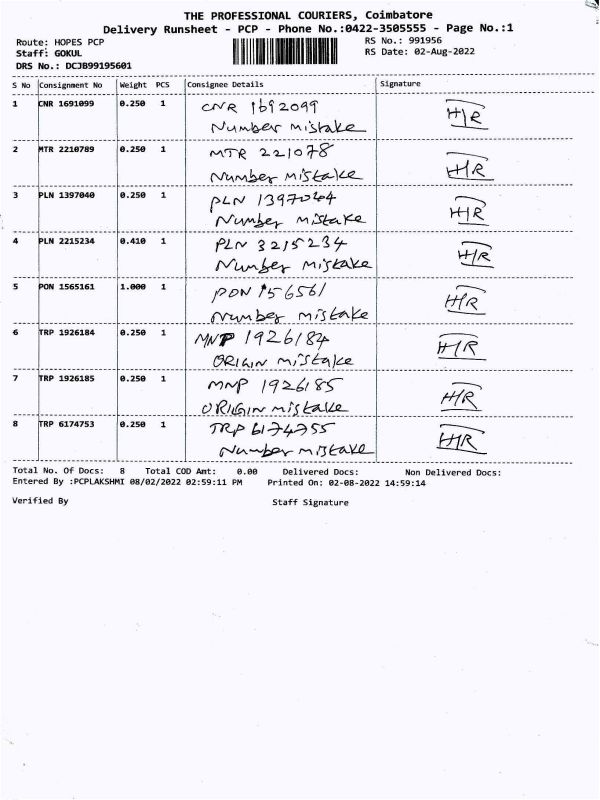 THE PROFESSIONAL COURIERS, Coimbatore
Delivery Runsheet - PCP - Phone No.:0422-3505555 - Page No.:1
Route: HOPES PCP RS No.: 991956
Staff: GOKUL RS Date: 02-Aug-2022
DRS No.: DCJB99195601
S No Consignment No Weight PCS Consignee Details Signature
1 CNR 1691099 0.250 1 CNR 1692099 H/R
Number mistake
2 MTR 2210789 0.250 1 MTR 221078 H/R
Number mistake
3 PLN 1397040 0.250 1 PLN 1397004 H/R
Number mistake
4 PLN 2215234 0.410 1 PLN 3215234 H/R
Number mistake
5 PON 1565161 1.000 1 PON 156561 H/R
Number mistake
6 TRP 1926184 0.250 1 MNP 1926184 H/R
ORIGIN mistake
7 TRP 1926185 0.250 1 MNP 1926185 H/R
ORIGIN mistake
8 TRP 6174753 0.250 1 TRP 6174755 H/R
Number mistake
Total No. Of Docs: 8 Total COD Amt: 0.00 Delivered Docs: Non Delivered Docs:
Entered By :PCPLAKSHMI 08/02/2022 02:59:11 PM Printed On: 02-08-2022 14:59:14
Verified By Staff Signature